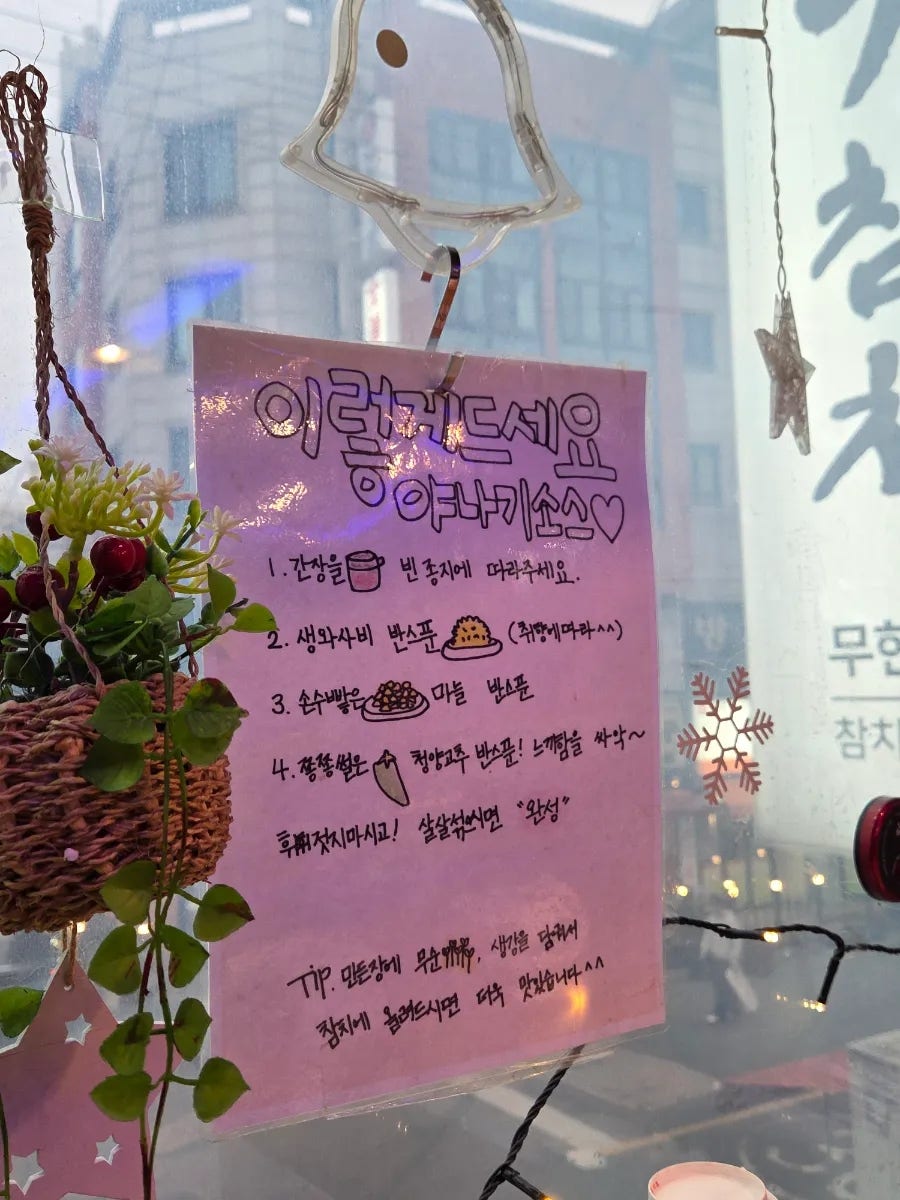 이렇게드세요
야나기소스♡
1. 간장을 빈 종지에 따라주세요.
2. 생와사비 반스푼 (취향에따라^^)
3. 손수빻은 마늘 반스푼
4. 쫑쫑썰은 청양고추 반스푼! 느끼함을 싸악~
젓지마시고! 살살섞으시면 "완성"
TIP. 만든장에 무순, 생강을 담궈서
참치에 올려드시면 더욱 맛있습니다^^
참치
무한
참치